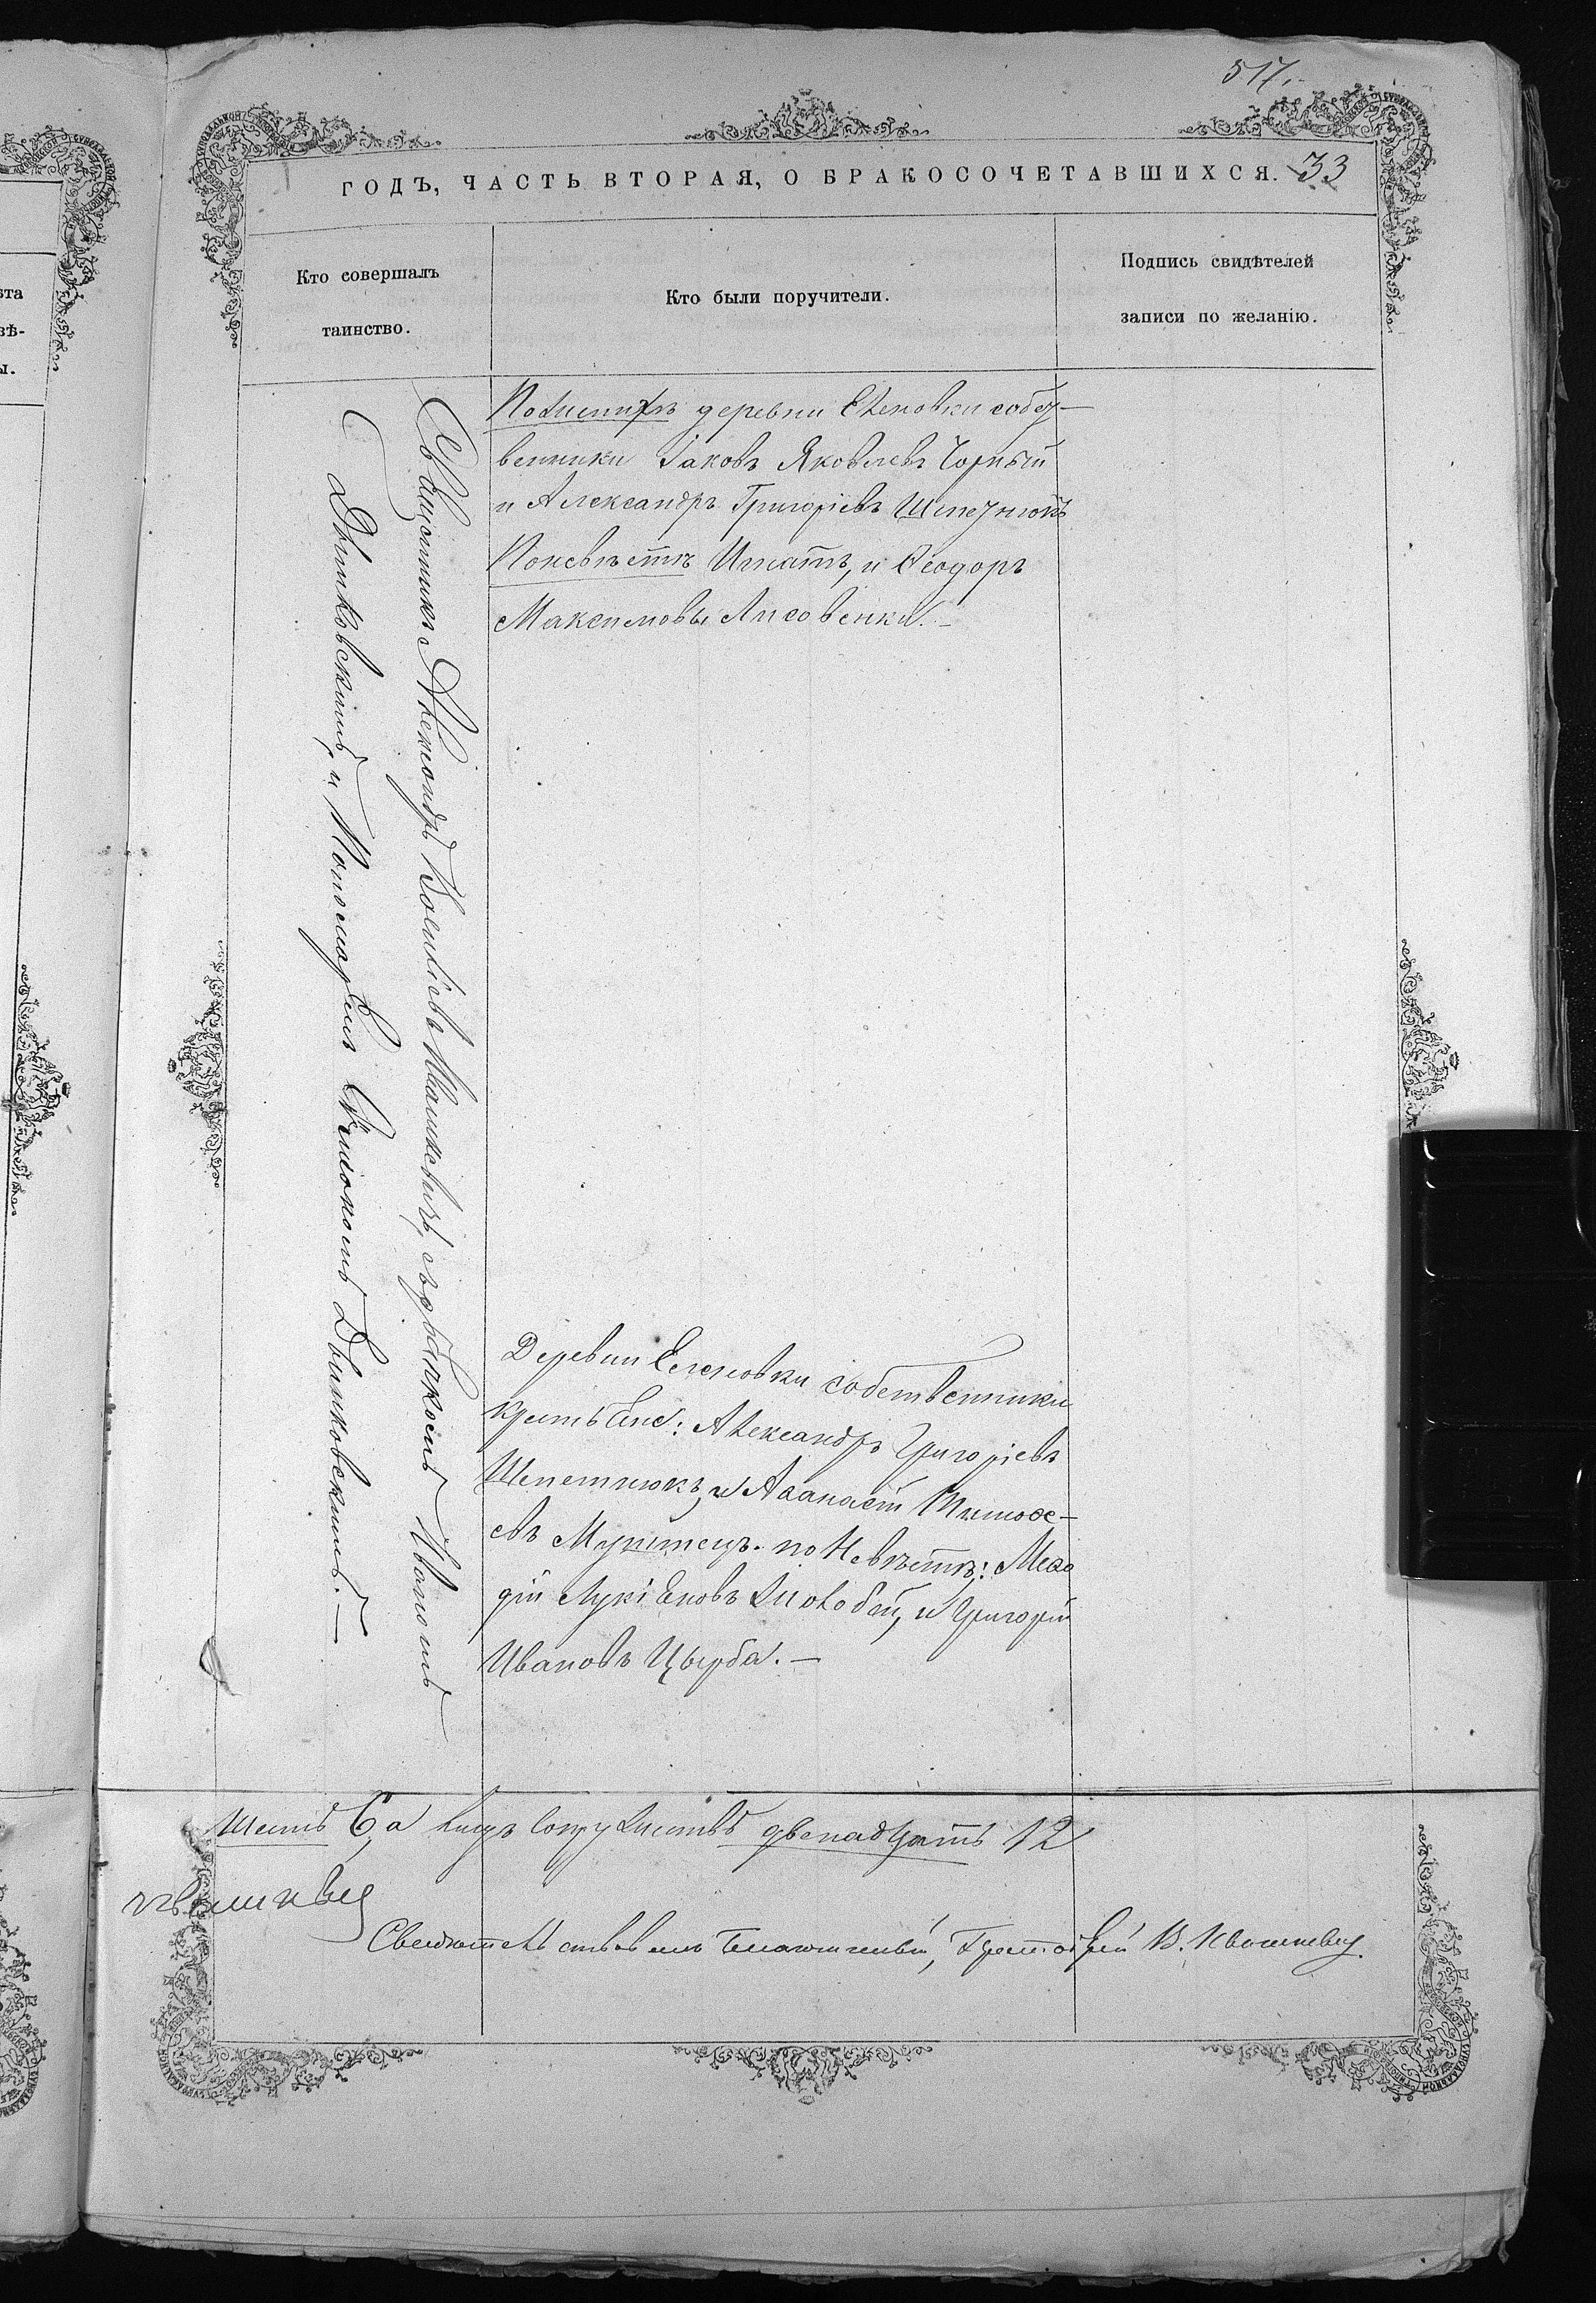 517.
ГОДЪ, ЧАСТЬ ВТОРАЯ, О БРАКОСОЧЕТАВШИХСЯ. 33
Кто совершалъ
таинство.
Кто были поручители.
Подпись свидѣтелей
записи по желанію.
Священникъ Александръ Василіевъ Ивашкевичъ, съ дьячкомъ Иваномъ
Двинковскимъ, и Пономаремъ Симономъ Двинковскимъ. —
По женихѣ деревни Еленовки собст-
венники Іаковъ Яковлевъ Чорный
и Александръ Григоріевъ Шпетнюкъ
По невѣстѣ Игнатъ, и Ѳеодоръ
Максимовы Лисовенки. —
Деревни Еленовки собственники
крестьяне: Александръ Григоріевъ
Шепетнюкъ, и Аѳанасій Тимоѳе-
евъ по невѣстѣ: Меѳо
дій Лукіяновъ и Григорій
Ивановъ Цырба. —
Шесть 6, а лицъ сопружествъ двенадцать 12
Ивашкевич
Благочинный, В. Ивашкевич.